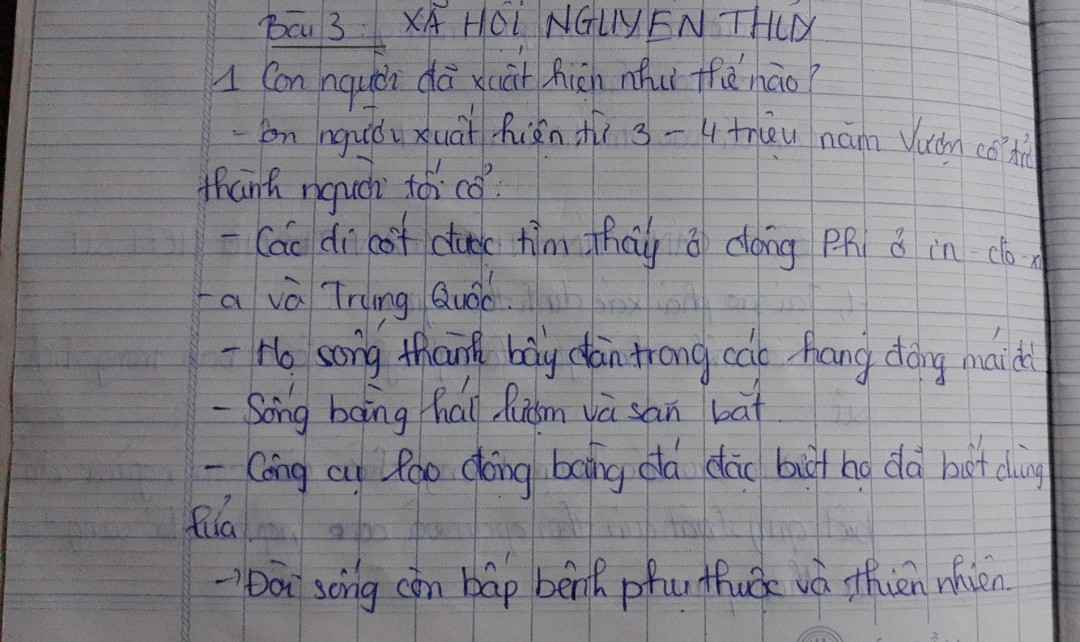 Bài 3: XÃ HỘI NGUYÊN THỦY
1 Con người đã xuất hiện như thế nào?
- Con người xuất hiện từ 3 - 4 triệu năm Vượn cổ trở
thành người tối cổ.
- Các di cốt được tìm thấy ở đông Phi ở in-đô-n
-a và Trung Quốc.
- Họ sống thành bầy đàn trong các hang động mái đá
- Sống bằng hái lượm và săn bắt.
- Công cụ lao động bằng đá đặc biệt họ đã biết dùng
lửa.
→ Đời sống còn bấp bênh phụ thuộc và thiên nhiên.